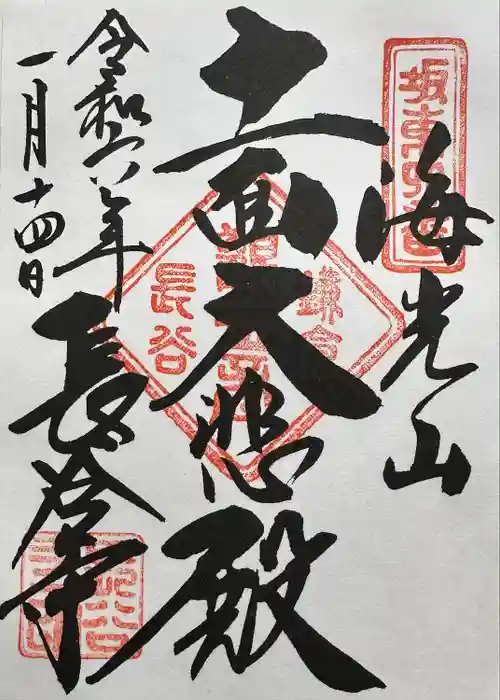 海光山
十一面大悲殿
令和六年
一月十四日
長谷寺
鎌倉
長谷